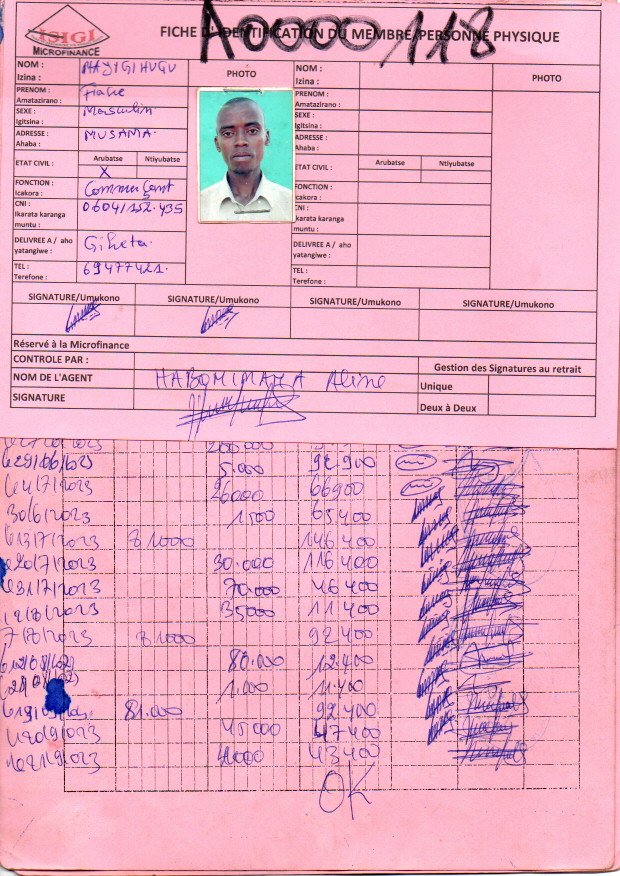 ISIGI
MICROFINANCE
FICHE D'IDENTIFICATION DU MEMBRE/PERSONNE PHYSIQUE
A0000/118
NOM :
Izina :
PHOTO
NOM :
Izina :
PHOTO
PRENOM :
Amatazirano :
PRENOM :
Amatazirano :
SEXE :
Igitsina :
Masculin
SEXE :
Igitsina :
ADRESSE :
Ahaba :
MUSAMA
ADRESSE :
Ahaba :
ETAT CIVIL :
Arubatse
Ntiyubatse
X
ETAT CIVIL :
Arubatse
Ntiyubatse
FONCTION :
Icakora :
Commerçant
FONCTION :
Icakora :
CNI :
Ikarata karanga
muntu :
0604/152.435
CNI :
Ikarata karanga
muntu :
DELIVREE A / aho
yatangiwe :
Giheta
DELIVREE A / aho
yatangiwe :
TEL :
Terefone :
69477421
TEL :
Terefone :
SIGNATURE/Umukono
SIGNATURE/Umukono
SIGNATURE/Umukono
SIGNATURE/Umukono
Réservé à la Microfinance
CONTROLE PAR :
Gestion des Signatures au retrait
NOM DE L'AGENT
HABONIMANA Aline
Unique
SIGNATURE
Deux à Deux
200.000
5.000 92.900
26000 66900
30/6/2023 1500 65.400
13/7/2023 81000 146400
20/7/2023 30.000 116400
31/7/2023 70.000 46400
35000 11400
7/8/2023 81000 92400
80.000 12.400
1.000 11.400
81.000 92400
45.000 47400
4000 43400
OK